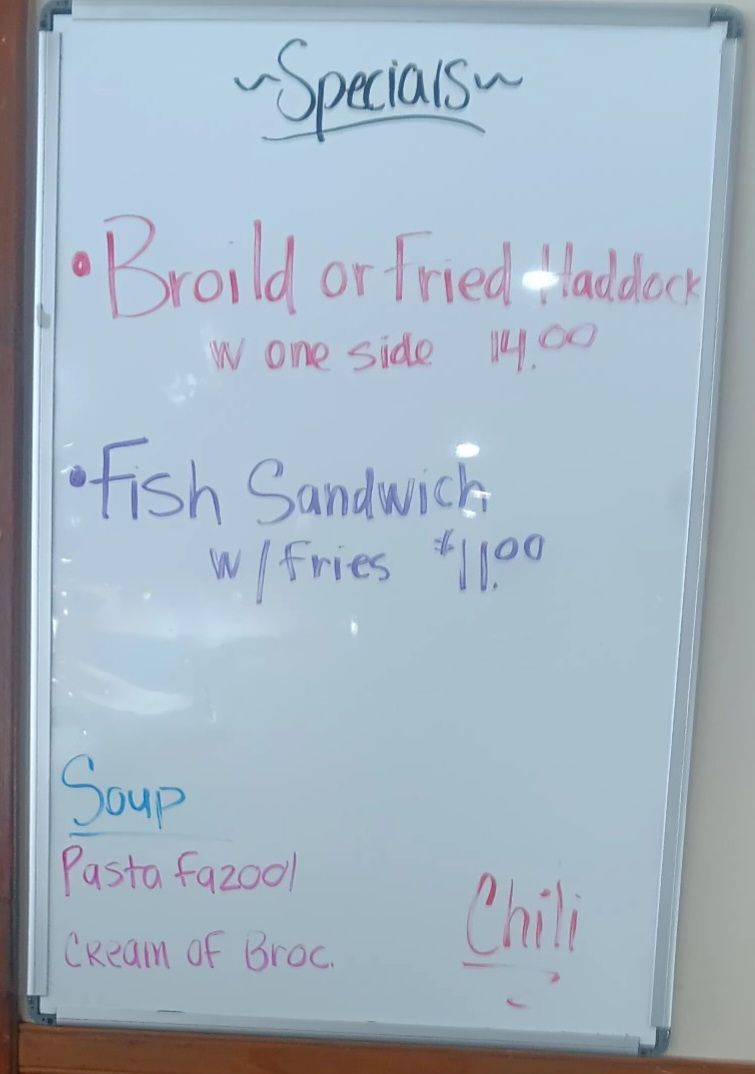 ~Specials~
• Broild or Fried Haddock
w one side 14.00
• Fish Sandwich
w/fries $11.00
Soup
Pasta Fazool
Cream of Broc.
Chili